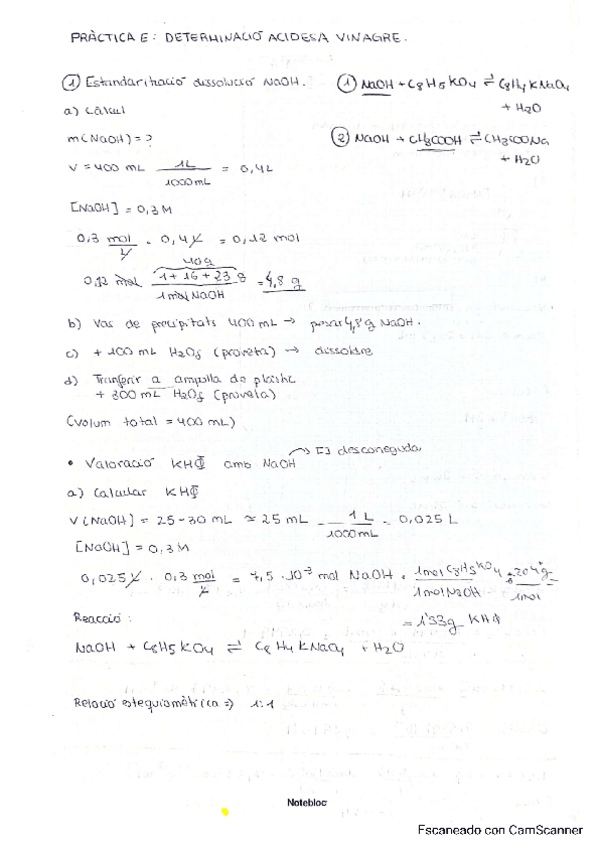 PRÀCTICA E: DETERMINACIÓ ACIDESA VINAGRE.
① Estandarització dissolució NaOH.
① NaOH + C8H5KO4 ⇌ C8H4KNaO4
+ H2O
a) Càlcul
m(NaOH) = ?
② NaOH + CH3COOH ⇌ CH3COONa
+ H2O
V = 400 mL 1L / 1000mL = 0,4L
[NaOH] = 0,3M
0,3 mol/L · 0,4 L = 0,12 mol
40g
0,12 mol 1+16+23 g / 1mol NaOH = 4,8 g
b) Vas de precipitats 400 mL → pesar 4,8 g NaOH.
c) + 100 mL H2Od (proveta) → dissoldre
d) Transferir a ampolla de plàstic
+ 300 mL H2Od (proveta)
(volum total = 400 mL)
• Valoració KHΦ amb NaOH → [] desconeguda
a) Calcular KHΦ
V(NaOH) = 25-30 mL ≈ 25 mL 1L / 1000mL = 0,025 L
[NaOH] = 0,3M
0,025 L · 0,3 mol/L = 7,5 · 10⁻³ mol NaOH · 1mol C8H5KO4 / 1mol NaOH · 204 g / 1mol
= 1'53g KHΦ
Reacció:
NaOH + C8H5KO4 ⇌ C8H4KNaO4 + H2O
Relació estequiomètrica ⇒ 1:1
Notebloc
Escaneado con CamScanner